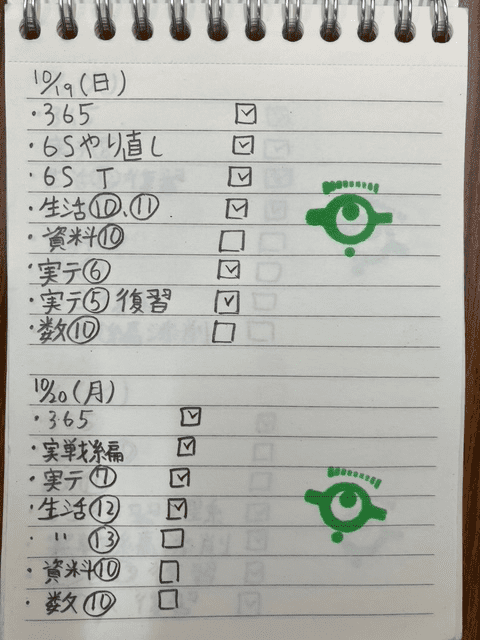 10/19(日)
・365 ☑
・6Sやり直し ☑
・6S T ☑
・生活⑩、⑪ ☑
・資料⑩ ☐
・実テ⑥ ☑
・実テ⑤復習 ☑
・数⑩ ☐
10/20(月)
・365 ☑
・実戦編 ☑
・実テ⑦ ☑
・生活⑫ ☑
・〃 ⑬ ☐
・資料⑩ ☐
・数⑩ ☐